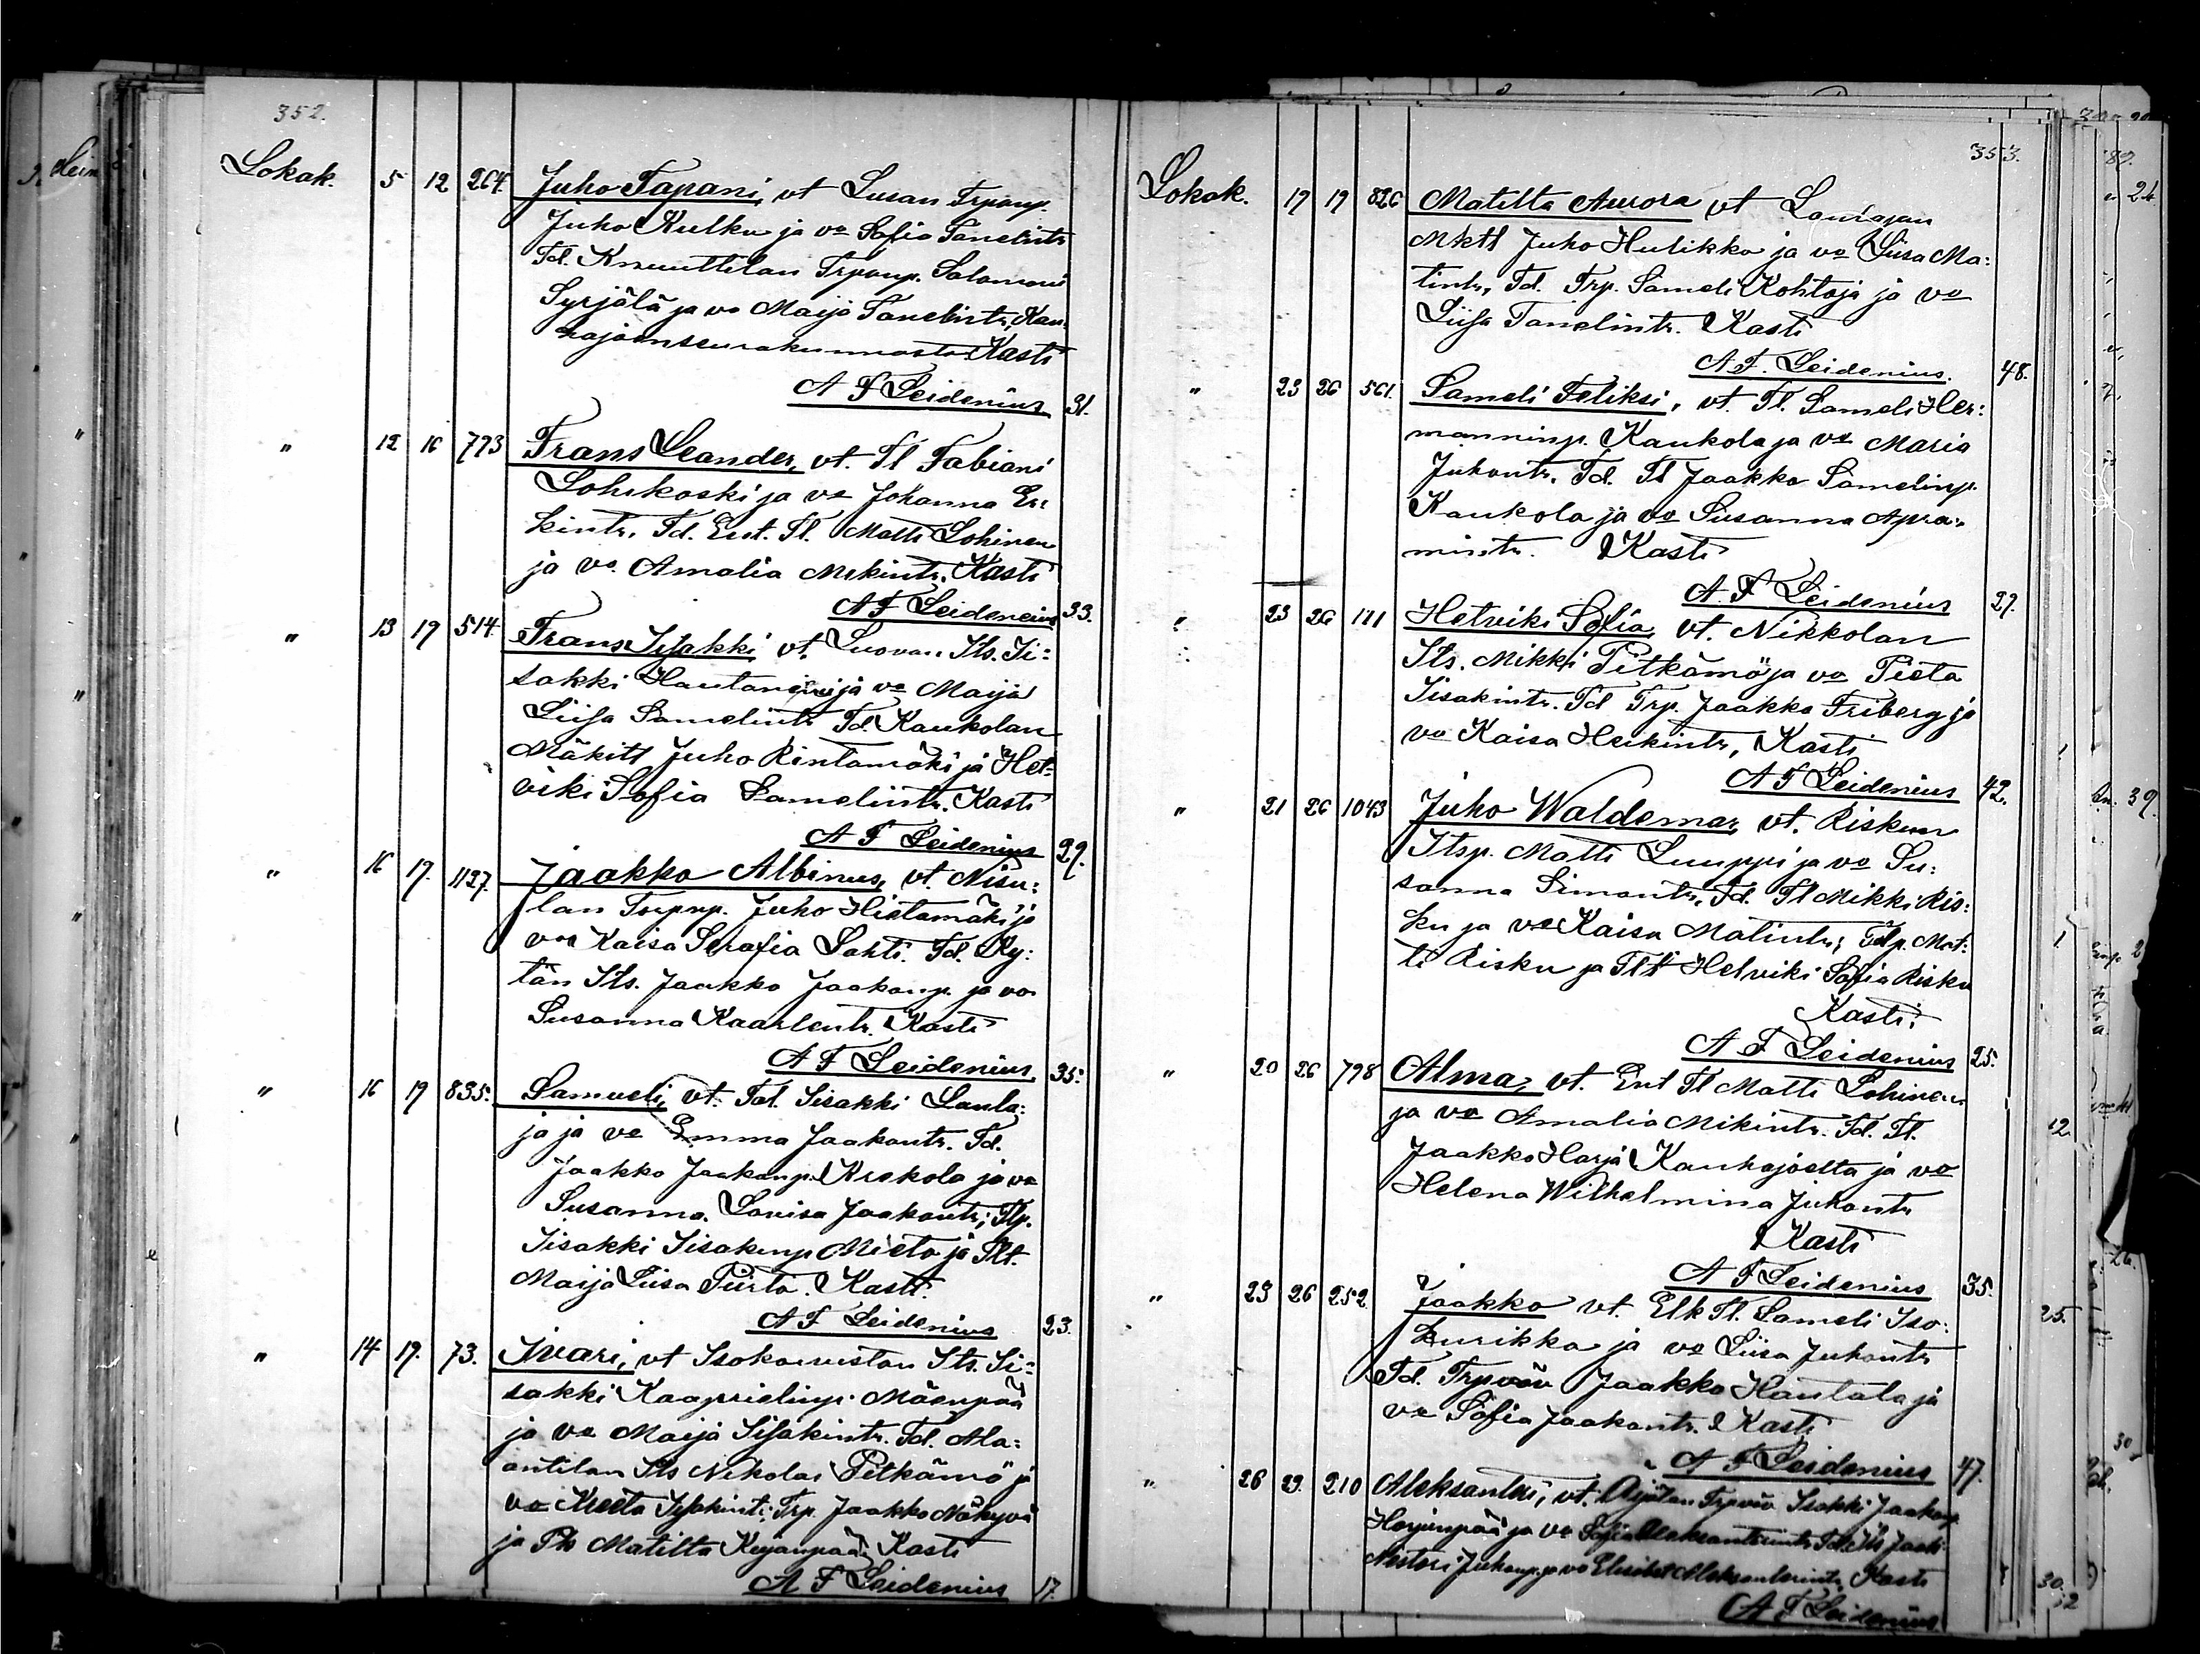 352.
Lokak. 5 12 264. Juho Tapani, vt Lusan Trpanp.
Juho Kulku ja vo Sofia Tanelintr
Td. Knuuttilan Trpanp. Salomoni
Syrjälä ja vo Maija Tanelintr, Kau-
hajoen seurakunnasta Kasti
A F Leidenius 31.
" 12 16 773 Frans Leander, vt. Tl Fabiani
Lohikoski ja vo Johanna Er:
kintr. Td. Ent. Tl. Matti Lohinen
ja vo Amalia Mikintr. Kasti
A F Leidenius 33.
" 13 19 514. Frans Iisakki vt. Luovan Its. Ii:
sakki Hautan ja vo Maija
Liisa Samelintr Td. Kaukolan
Mäkitl Juho Rintamäki ja Het:
viki Sofia Samelintr. Kasti
A F Leidenius 29.
" 16 19. 1127. Jaakko Albinus, vt. Nisu:
lan Torpnp. Juho Hietamäki ja
vo Kaisa Serafia Lahti. Td. Ry:
tän Its. Jaakko Jaakonp. ja vo
Susanna Kaarlentr. Kasti
A F Leidenius 35.
" 16 19 835. Samueli, vt. Tal. Iisakki Laula:
ja ja vo Emma Jaakontr. Td.
Jaakko Jaakonp. Krekola ja vo
Susanna Lovisa Jaakontr; Tlp.
Iisakki Iisakinp Mieto ja Tlt.
Maija Liisa Piirto. Kasti.
A F Leidenius 23.
" 14 19. 73. Ivari, vt Isokorvestan Its. Ii:
sakki Kaaprielinp. Mäenpää
ja vo Maija Iisakintr. Td. Ala:
antilan Its Nikolai Pitkämö ja
vo Kreeta Iisakintr; Trp. Jaakko Näkyvä
ja Ph Matilta Kujanpää Kasti
A F Leidenius 17.
353.
Lokak. 17 19 826 Matilta Aurora vt Laurajan
Mktl Juho Hulikko ja vo Liisa Ma:
tintr, Td. Trp. Sameli Kohtaja ja vo
Liisa Tanelintr. Kasti
A. F. Leidenius. 48.
" 23 26 561. Sameli Feliksi, vt. Tl. Sameli Her:
manninp. Kaukola ja vo Maria
Juhontr. Td. Tl Jaakko Samelinp.
Kaukola ja vo Susanna Apra:
mintr. Kasti
A. F Leidenius 27.
" 23 26 111 Hetviki Sofia, vt. Nikkolan
Its. Mikki Pitkämö ja vo Pieta
Iisakintr. Td Trp. Jaakko Friberg ja
vo Kaisa Heikintr, Kasti
A F Leidenius 42.
" 21 26 1043 Juho Waldemar, vt. Riskun
Itsp. Matti Luuppi ja vo Su:
sanna Simontr, Td. Tl Mikki Ris:
ku ja vo Kaisa Matintr; Tlp. Mat:
ti Risku ja Tlt Helviki Sofia Risku
Kasti.
A F Leidenius 25.
" 20 26 798 Alma, vt. Ent Tl Matti Lohinen
ja vo Amalia Mikintr. Td. Tl.
Jaakko Harja Kauhajoelta ja vo
Helena Wilhelmina Juhontr
Kasti
A F Leidenius 35.
" 23 26 252. Jaakko vt. Elk Tl. Sameli Iso:
kurikka ja vo Liisa Juhontr
Td. Trpväv Jaakko Hautala ja
vo Sofia Jaakontr. Kasti
A F Leidenius 47.
" 26 29. 210 Aleksanteri, vt. Trpväv Isakki Jaakonp
Harjunpää ja vo Sofia Aleksanterintr Td. Its Jaak.
Nestori Juhonp. ja vo Elisabet Aleksanterintr, Kasti
A F Leidenius